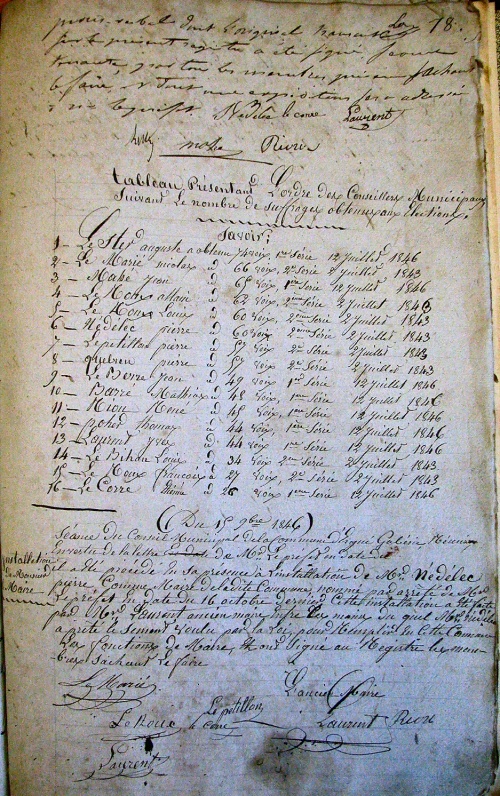 78.
sur le présent registre a été signé séance
tenante, par tous les membres, qui ont sachant
le faire,
Nédélec Laurent
tableau Présentant L'ordre des Conseillers Municipaux
Suivant Le nombre de suffrages obtenus aux élections;
Savoir;
1 - Le Ster auguste a obtenu 74 voix, 1ère Série 12 Juillet 1846
2 - Le Marié nicolas d 66 voix, 2me Série 2 Juillet 1843
3 - Mahé yean d 65 voix, 1ère Série 12 Juillet 1846
4 - Le Roux allain d 62 voix, 2me Série 2 Juillet 1843
5 - Le Roux Louis d 60 voix, 2me Série 2 Juillet 1843
6 - Nédelec pierre d 60 voix 2me Série 2 Juillet 1843
7 - Le petillon pierre d 57 voix 2me Série 2 Juillet 1843
8 - quéven pierre d 57 voix 2e Série 2 Juillet 1843
9 - Le Berre yean d 49 voix 1ère Série 12 Juillet 1846
10 - Barré Mathieu d 48 voix, 1ère Série 12 Juillet 1846
11 - Riou René d 45 voix, 1ère Série 12 Juillet 1846
12 - pochet thomas d 44 voix, 1ère Série 12 Juillet 1846
13 - Laurent yves d 44 voix 1ère Série 12 Juillet 1846
14 - Le Bihan Louis d 34 voix 2me Série 2 Juillet 1843
15 - Le Roux francois d 27 voix, 2e Série 2 Juillet 1843
16 - Le Corre d 26 voix 1ère Série 12 Juillet 1846
(Du 15 9bre 1846)
Séance du Conseil Municipal de la Commune d'Ergué Gabéric Réunie
En vertu de la lettre de Mr Le préfet en date du
Installation
de Monsieur
Maire
il a été procédé en sa présence à L'installation de Mr. Nédélec
pierre Comme Maire de ladite Commune, nommé par arrêté de Mr
Le préfet en date du 16 octobre dernier Cette installation a été faite
par Mr. Laurent ancien maire Entre Les mains du quel Mr. Nédélec
a prêté le Serment voulu par la Loi, pour Remplir En Cette Commune
Les fonctions de Maire, Et ont Signé au Registre les mem-
bres Sachant Le faire
Le Marié L'ancien Maire
Le Roux Le petillon Laurent Riou
Laurent